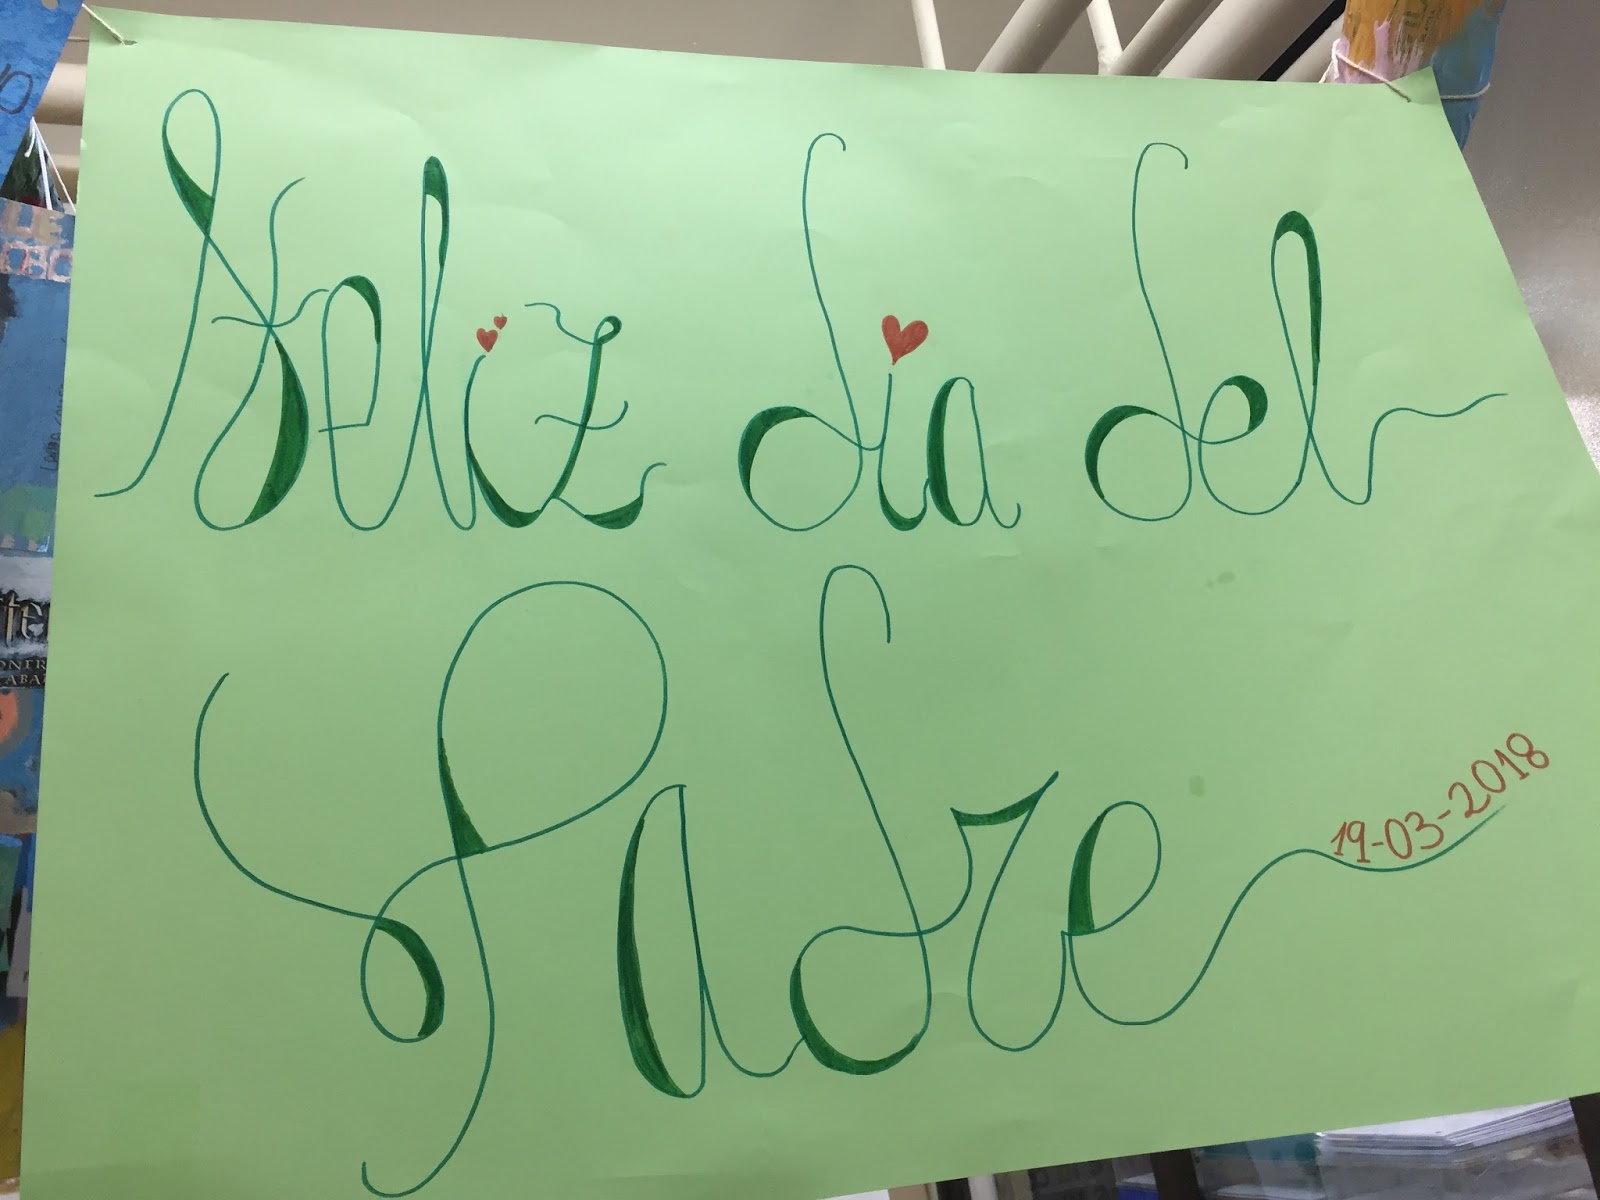 Feliz dia del
Padre
19-03-2018